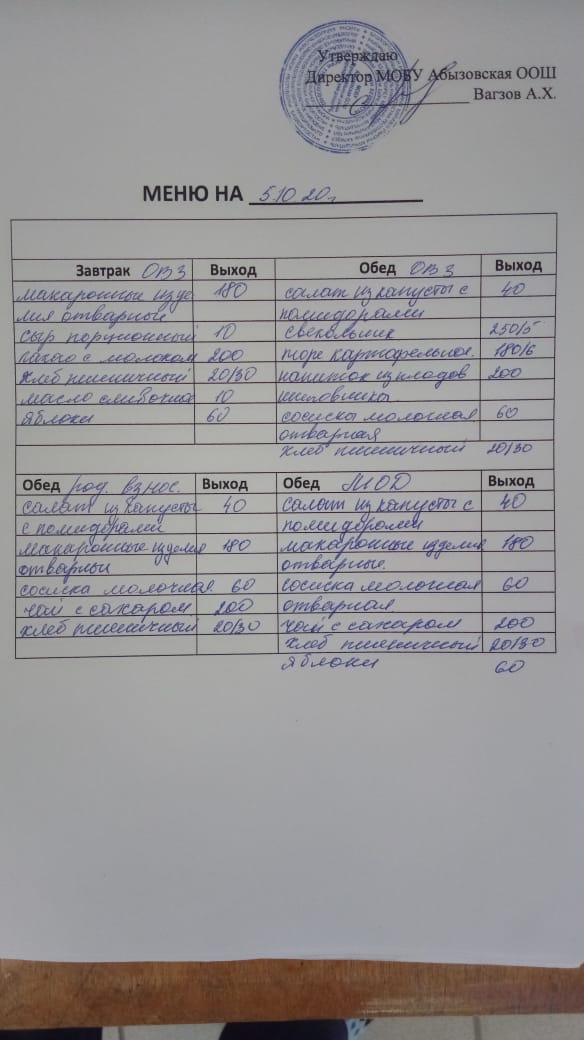 Утверждаю
Директор МОБУ Абызовская ООШ
Вагзов А.Х.
МЕНЮ НА 5.10 20г
Завтрак ОВЗ Выход
макаронные изде 180
лия отварные
сыр порционный 10
какао с молоком 200
хлеб пшеничный 20/30
масло сливочное 10
яблоки 60
Обед ОВЗ Выход
салат из капусты с 40
помидорами
свекольник 250/5
пюре картофельное. 180/6
напиток из плодов 200
шиповника.
сосиска молочная 60
отварная
хлеб пшеничный 20/30
Обед род. взнос. Выход
салат из капусты 40
с помидорами
макаронные изделия 180
отварные
сосиска молочная 60
чай с сахаром 200
хлеб пшеничный 20/30
Обед МОД Выход
салат из капусты с 40
помидорами
макаронные изделия 180
отварные.
сосиска молочная 60
отварная
чай с сахаром 200
хлеб пшеничный 20/30
яблоки 60